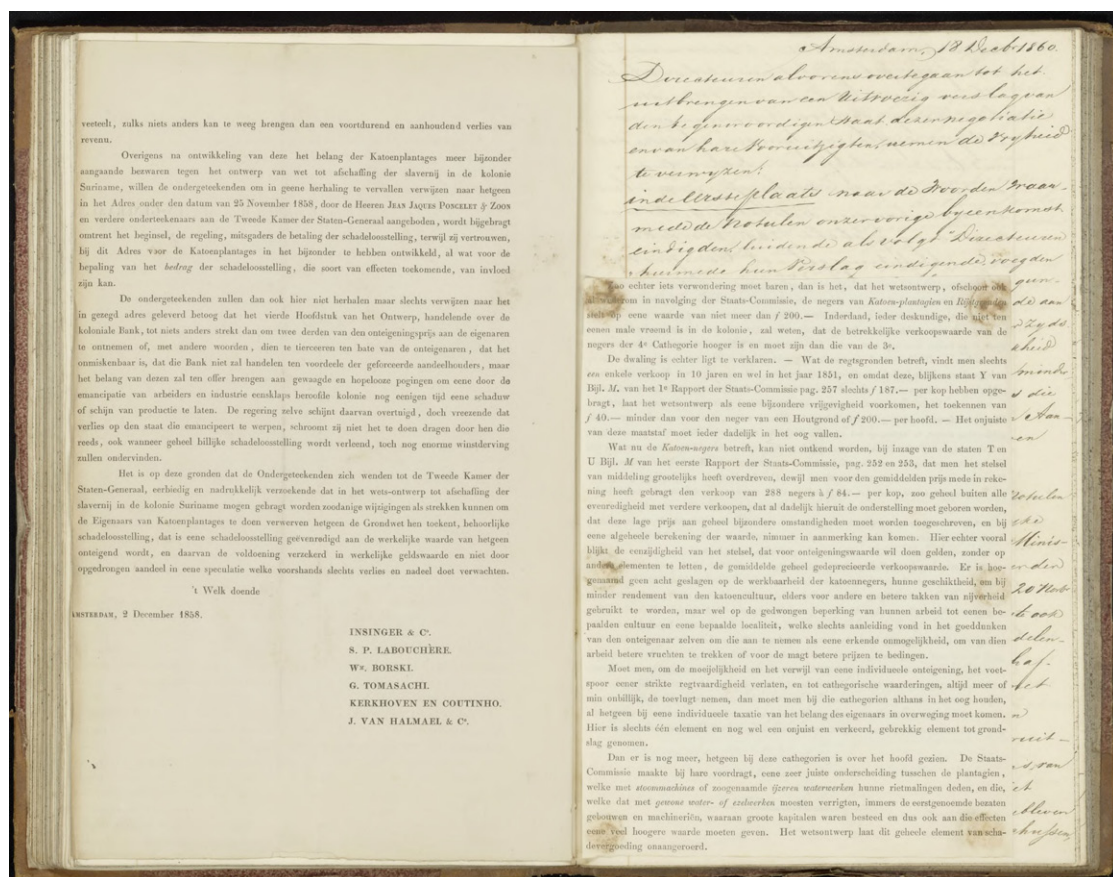 veeteelt, zulks niets anders kan te weeg brengen dan een voortdurend en aanhoudend verlies van
revenu.
Overigens na ontwikkeling van deze het belang der Katoenplantages meer bijzonder
aangaande bezwaren tegen het ontwerp van wet tot afschaffing der slavernij in de kolonie
Suriname, willen de ondergeteekenden om in geene herhaling te vervallen verwijzen naar hetgeen
in het Adres onder den datum van 25 November 1858, door de Heeren JEAN JAQUES PONCELET & ZOON
en verdere onderteekenaars aan de Tweede Kamer der Staten-Generaal aangeboden, wordt bijgebragt
omtrent het beginsel, de regeling, mitsgaders de betaling der schadeloosstelling, terwijl zij vertrouwen,
bij dit Adres voor de Katoenplantages in het bijzonder te hebben ontwikkeld, al wat voor de
bepaling van het bedrag der schadeloosstelling, die soort van effecten toekomende, van invloed
zijn kan.
De ondergeteekenden zullen dan ook hier niet herhalen maar slechts verwijzen naar het
in gezegd adres geleverd betoog dat het vierde Hoofdstuk van het Ontwerp, handelende over de
koloniale Bank, tot niets anders strekt dan om twee derden van den onteigeningsprijs aan de eigenaren
te ontnemen of, met andere woorden, dien te tierceren ten bate van de onteigenaren, dat het
onmiskenbaar is, dat die Bank niet zal handelen ten voordeele der geforceerde aandeelhouders, maar
het belang van dezen zal ten offer brengen aan gewaagde en hopelooze pogingen om eene door de
emancipatie van arbeiders en industrie ensklaps beroofde kolonie nog eenigen tijd eene schaduw
of schijn van productie te laten. De regering zelve schijnt daarvan overtuigd, doch vreezende dat
verlies op den staat die emancipeert te werpen, schroomt zij niet het te doen dragen door hen die
reeds, ook wanneer geheel billijke schadeloosstelling wordt verleend, toch nog enorme winstderving
zullen ondervinden.
Het is op deze gronden dat de Ondergeteekenden zich wenden tot de Tweede Kamer der
Staten-Generaal, eerbiedig en nadrukkelijk verzoekende dat in het wets-ontwerp tot afschaffing der
slavernij in de kolonie Suriname mogen gebragt worden zoodanige wijzigingen als strekken kunnen om
de Eigenaars van Katoenplantages te doen verwerven hetgeen de Grondwet hen toekent, behoorlijke
schadeloosstelling, dat is eene schadeloosstelling geëvenredigd aan de werkelijke waarde van hetgeen
onteigend wordt, en daarvan de voldoening verzekerd in werkelijke geldswaarde en niet door
opgedrongen aandeel in eene speculatie welke voorshands slechts verlies en nadeel doet verwachten.
't Welk doende
AMSTERDAM, 2 December 1858.
INSINGER & Co.
S. P. LABOUCHÈRE.
Wm. BORSKI.
G. TOMASACHI.
KERKHOVEN EN COUTINHO.
J. VAN HALMAEL & Co.
Amsterdam, 18 Decbr 1860.
Directeuren alvorens overtegaan tot het
uitbrengen van een Uitvoerig verslag van
den tegenwoordigen Staat dezer negotiatie
en van hare Vooruitzigten, nemen de Vrijheid
te verwijzen:
in de Eerste plaats naar de Woorden Waar-
mede de Notulen onzer vorige bijeenkomst
eindigden, luidende als volgt "Directeuren
hiermede hun Verslag eindigende, voegden
Zoo echter iets verwondering moet baren, dan is het, dat het wetsontwerp, ofschoon ook
alweder in navolging der Staats-Commissie, de negers van Katoen-plantagien en
stelt op eene waarde van niet meer dan f 200.— Inderdaad, ieder deskundige, die niet ten
eenen male vreemd is in de kolonie, zal weten, dat de betrekkelijke verkoopswaarde van de
negers der 4e Cathegorie hooger is en moet zijn dan die van de 3e.
De dwaling is echter ligt te verklaren. — Wat de regtsgronden betreft, vindt men slechts
een enkele verkoop in 10 jaren en wel in het jaar 1851, en omdat deze, blijkens staat Y van
Bijl. M. van het 1e Rapport der Staats-Commissie pag. 257 slechts f 187.— per kop hebben opge-
bragt, laat het wetsontwerp als eene bijzondere vrijgevigheid voorkomen, het toekennen van
f 40.— minder dan voor den neger van een Houtgrond of f 200.— per hoofd. — Het onjuiste
van deze maatstaf moet ieder dadelijk in het oog vallen.
Wat nu de Katoen-negers betreft, kan niet ontkend worden, bij inzage van de staten T en
U Bijl. M van het eerste Rapport der Staats-Commissie, pag. 252 en 253, dat men het stelsel
van middeling grootelijks heeft overdreven, dewijl men voor den gemiddelden prijs mede in reke-
ning heeft gebragt den verkoop van 288 negers à f 84.— per kop, zoo geheel buiten alle
evenredigheid met verdere verkoopen, dat al dadelijk hieruit de onderstelling moet geboren worden,
dat deze lage prijs aan geheel bijzondere omstandigheden moet worden toegeschreven, en bij
eene algeheele berekening der waarde, nimmer in aanmerking kan komen. Hier echter vooral
blijkt de eenzijdigheid van het stelsel, dat voor onteigeningswaarde wil doen gelden, zonder op
andere elementen te letten, de gemiddelde geheel gedeprecieerde verkoopswaarde. Er is hoe-
genaamd geen acht geslagen op de werkbaarheid der katoennegers, hunne geschiktheid, om bij
minder rendement van den katoencultuur, elders voor andere en betere takken van nijverheid
gebruikt te worden, maar wel op de gedwongen beperking van hunnen arbeid tot eenen be-
paalden cultuur en eene bepaalde localiteit, welke slechts aanleiding vond in het goeddunken
van den onteigenaar zelven om die aan te nemen als eene erkende onmogelijkheid, om van dien
arbeid betere vruchten te trekken of voor de magt betere prijzen te bedingen.
Moet men, om de moeijelijkheid en het verwijl van eene individueele onteigening, het voet-
spoor eener strikte regtvaardigheid verlaten, en tot cathegorische waarderingen, altijd meer of
min onbillijk, de toevlugt nemen, dan moet men bij die cathegorien althans in het oog houden,
al hetgeen bij eene individueele taxatie van het belang des eigenaars in overweging moet komen.
Hier is slechts één element en nog wel een onjuist en verkeerd, gebrekkig element tot grond-
slag genomen.
Dan er is nog meer, hetgeen bij deze cathegorien is over het hoofd gezien. De Staats-
Commissie maakte bij hare voordragt, eene zeer juiste onderscheiding tusschen de plantagien,
welke met stoommachines of zoogenaamde ijzeren waterwerken hunne rietmalingen deden, en die,
welke dat met gewone water- of ezelwerken moesten verrigten, immers de eerstgenoemde bezaten
gebouwen en machineriën, waaraan groote kapitalen waren besteed en dus ook aan die effecten
eene veel hoogere waarde moeten geven. Het wetsontwerp laat dit geheele element van scha-
devergoeding onaangeroerd.